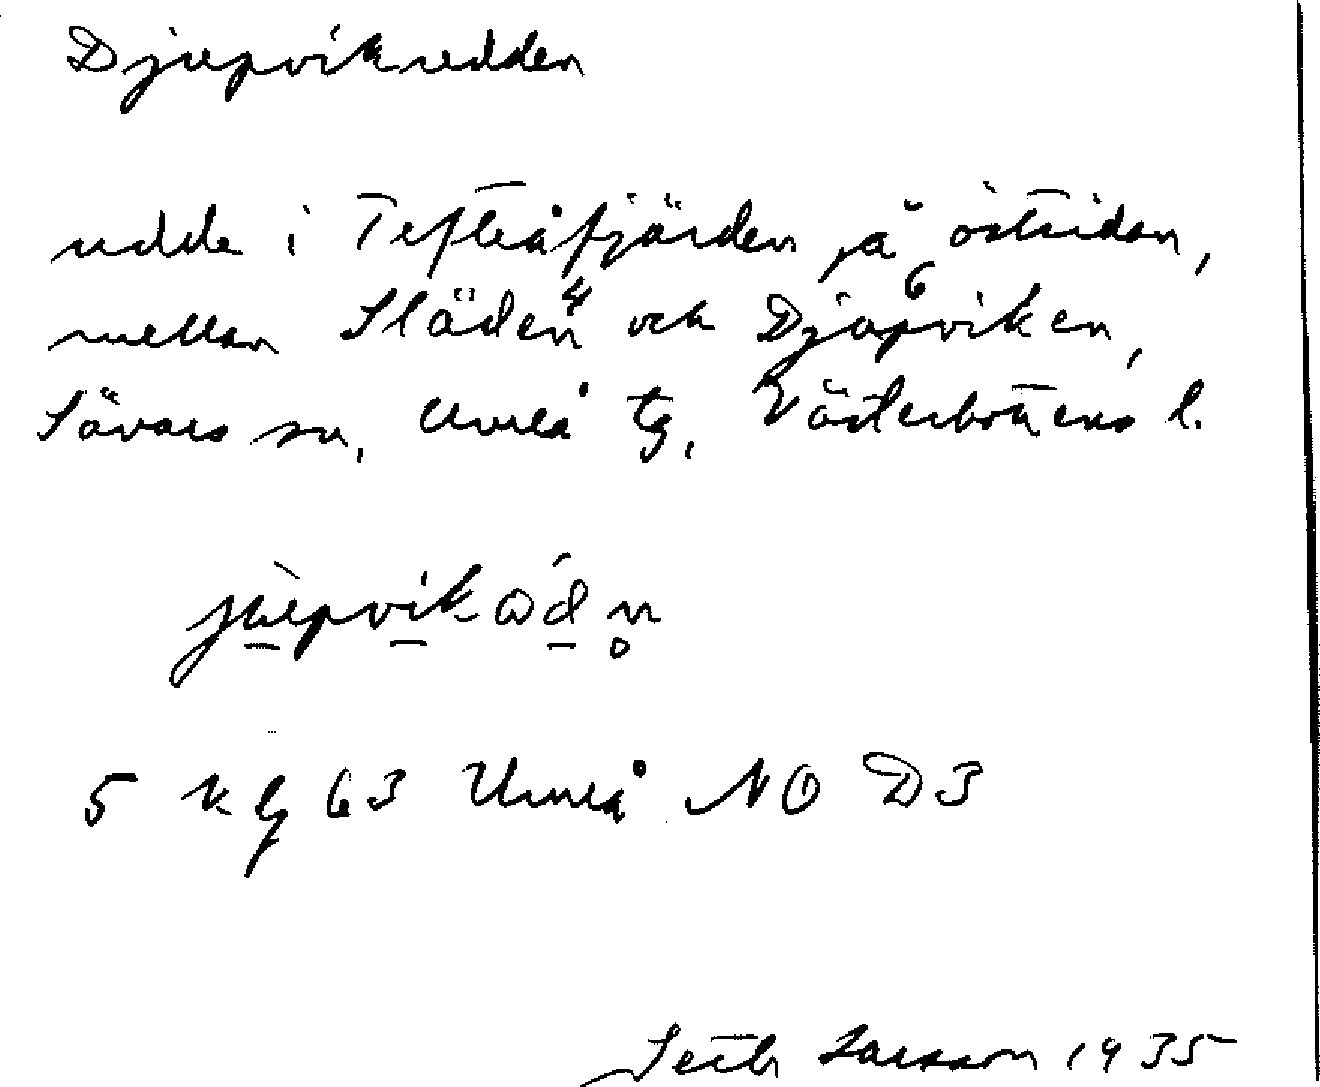 Djupvikudden
udde i Tefteåfjärden på östsidan,
mellan Släden⁴ och Djupviken⁶,
Sävars sn, Umeå tg, Västerbottens l.
5 kg 63 Umeå NO D3
Seth Larsson 1935